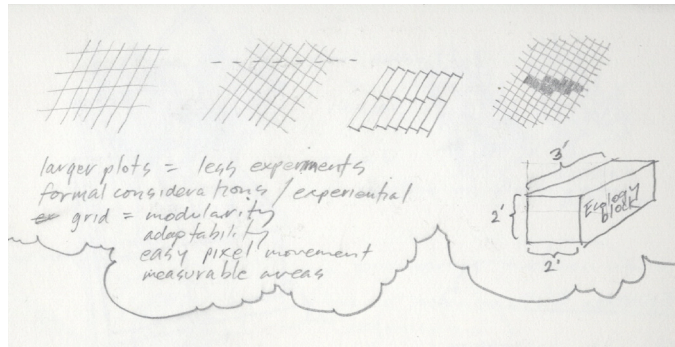 larger plots = less experiments
formal considerations / experiential
grid = modularity
adaptability
easy pixel movement
measurable areas
3'
2'
Ecology
block
2'